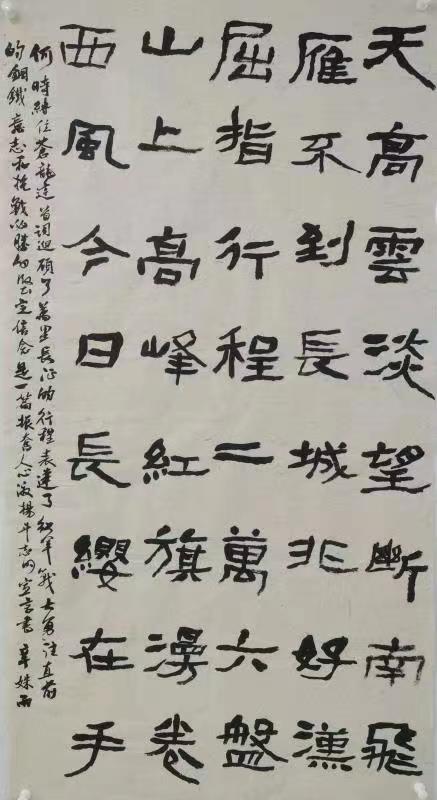 天高雲淡望断南飛
雁不到長城非好漢
屈指行程二萬六盤
山上高峰紅旗漫卷
西風今日長纓在手
何時縛住蒼龍這首词迴顧了萬里長征的行程表達了紅軍戰士勇往直前
的鋼鐵意志和抗戰必勝的堅定信念是一首振奮人心激揚斗志的宣言書 姝雨